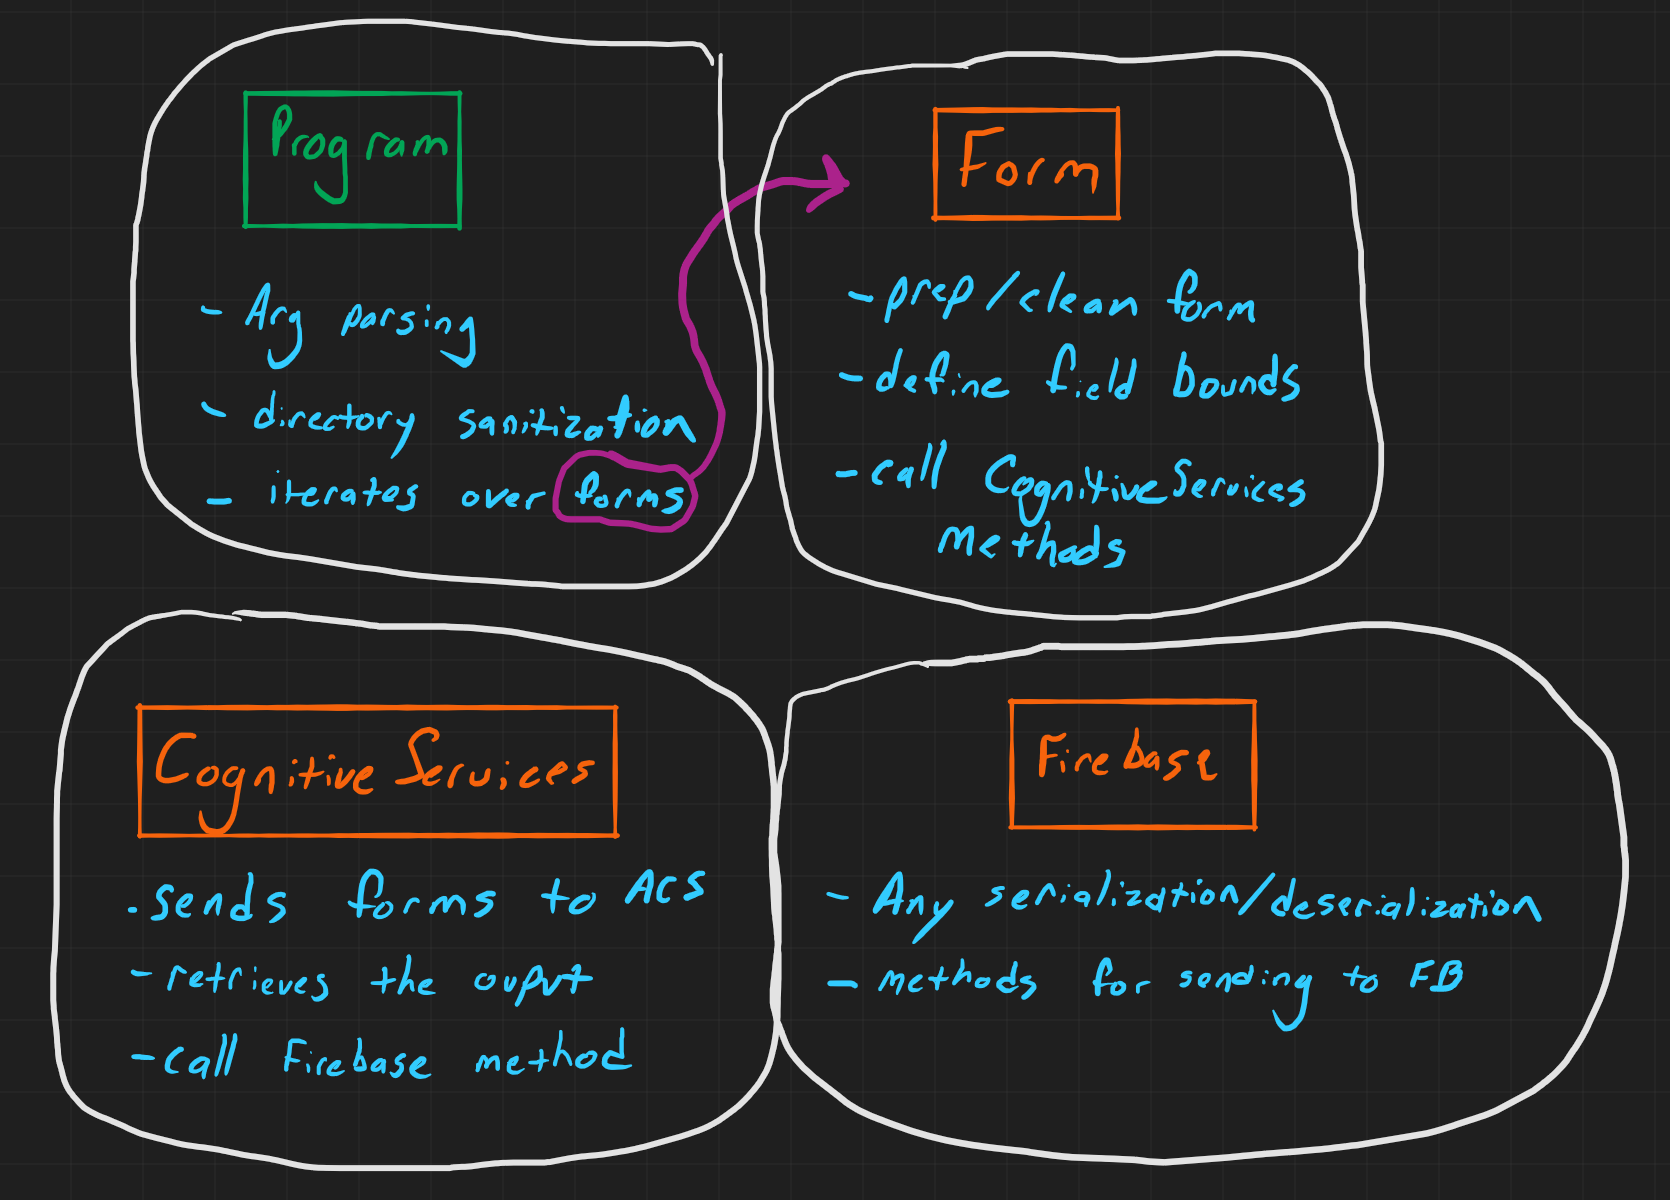 Program
- Arg parsing
- directory sanitization
- iterates over forms
Form
- prep/clean form
- define field bounds
- call CognitiveServices
methods
CognitiveServices
- sends forms to ACS
- retrieves the ouput
- call Firebase method
Firebase
- Any serialization/deserialization
- methods for sending to FB